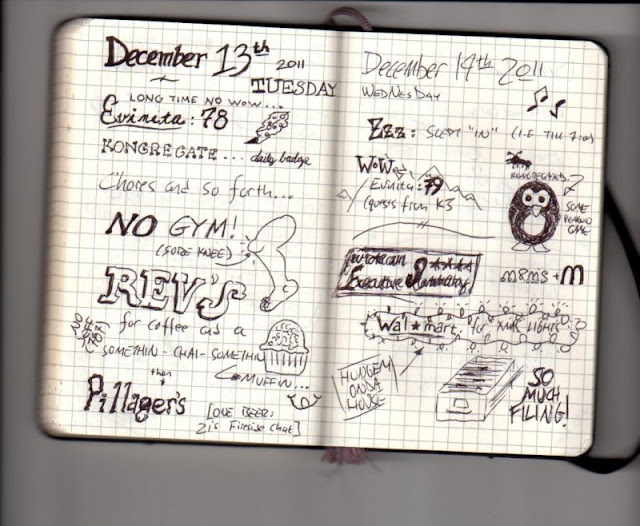 December 13th 2011
TUESDAY
LONG TIME NO WOW...
Evinita: 78
KONGREGATE... daily badge
Chores and so forth...
NO GYM!
(SORE KNEE)
REV'S
for coffee and a
SOMETHIN-CHAI-SOMETHIN
MUFFIN...
then
Pillager's
[ONE BEER;
2is Fireside Chat]
December 14th 2011
WEDNESDAY
Zzz: SLEPT "IN" (I.E. THE 7:00)
WoW
Evinita: 79
(quests from K3
KONGREGATE?
SOME
PENGUIN
GAME
Executive Summary
m&m's + m
Wal★mart for XMAS LIGHTS
HUNGEM
ONDA
HOUSE
SO
MUCH
FILING!